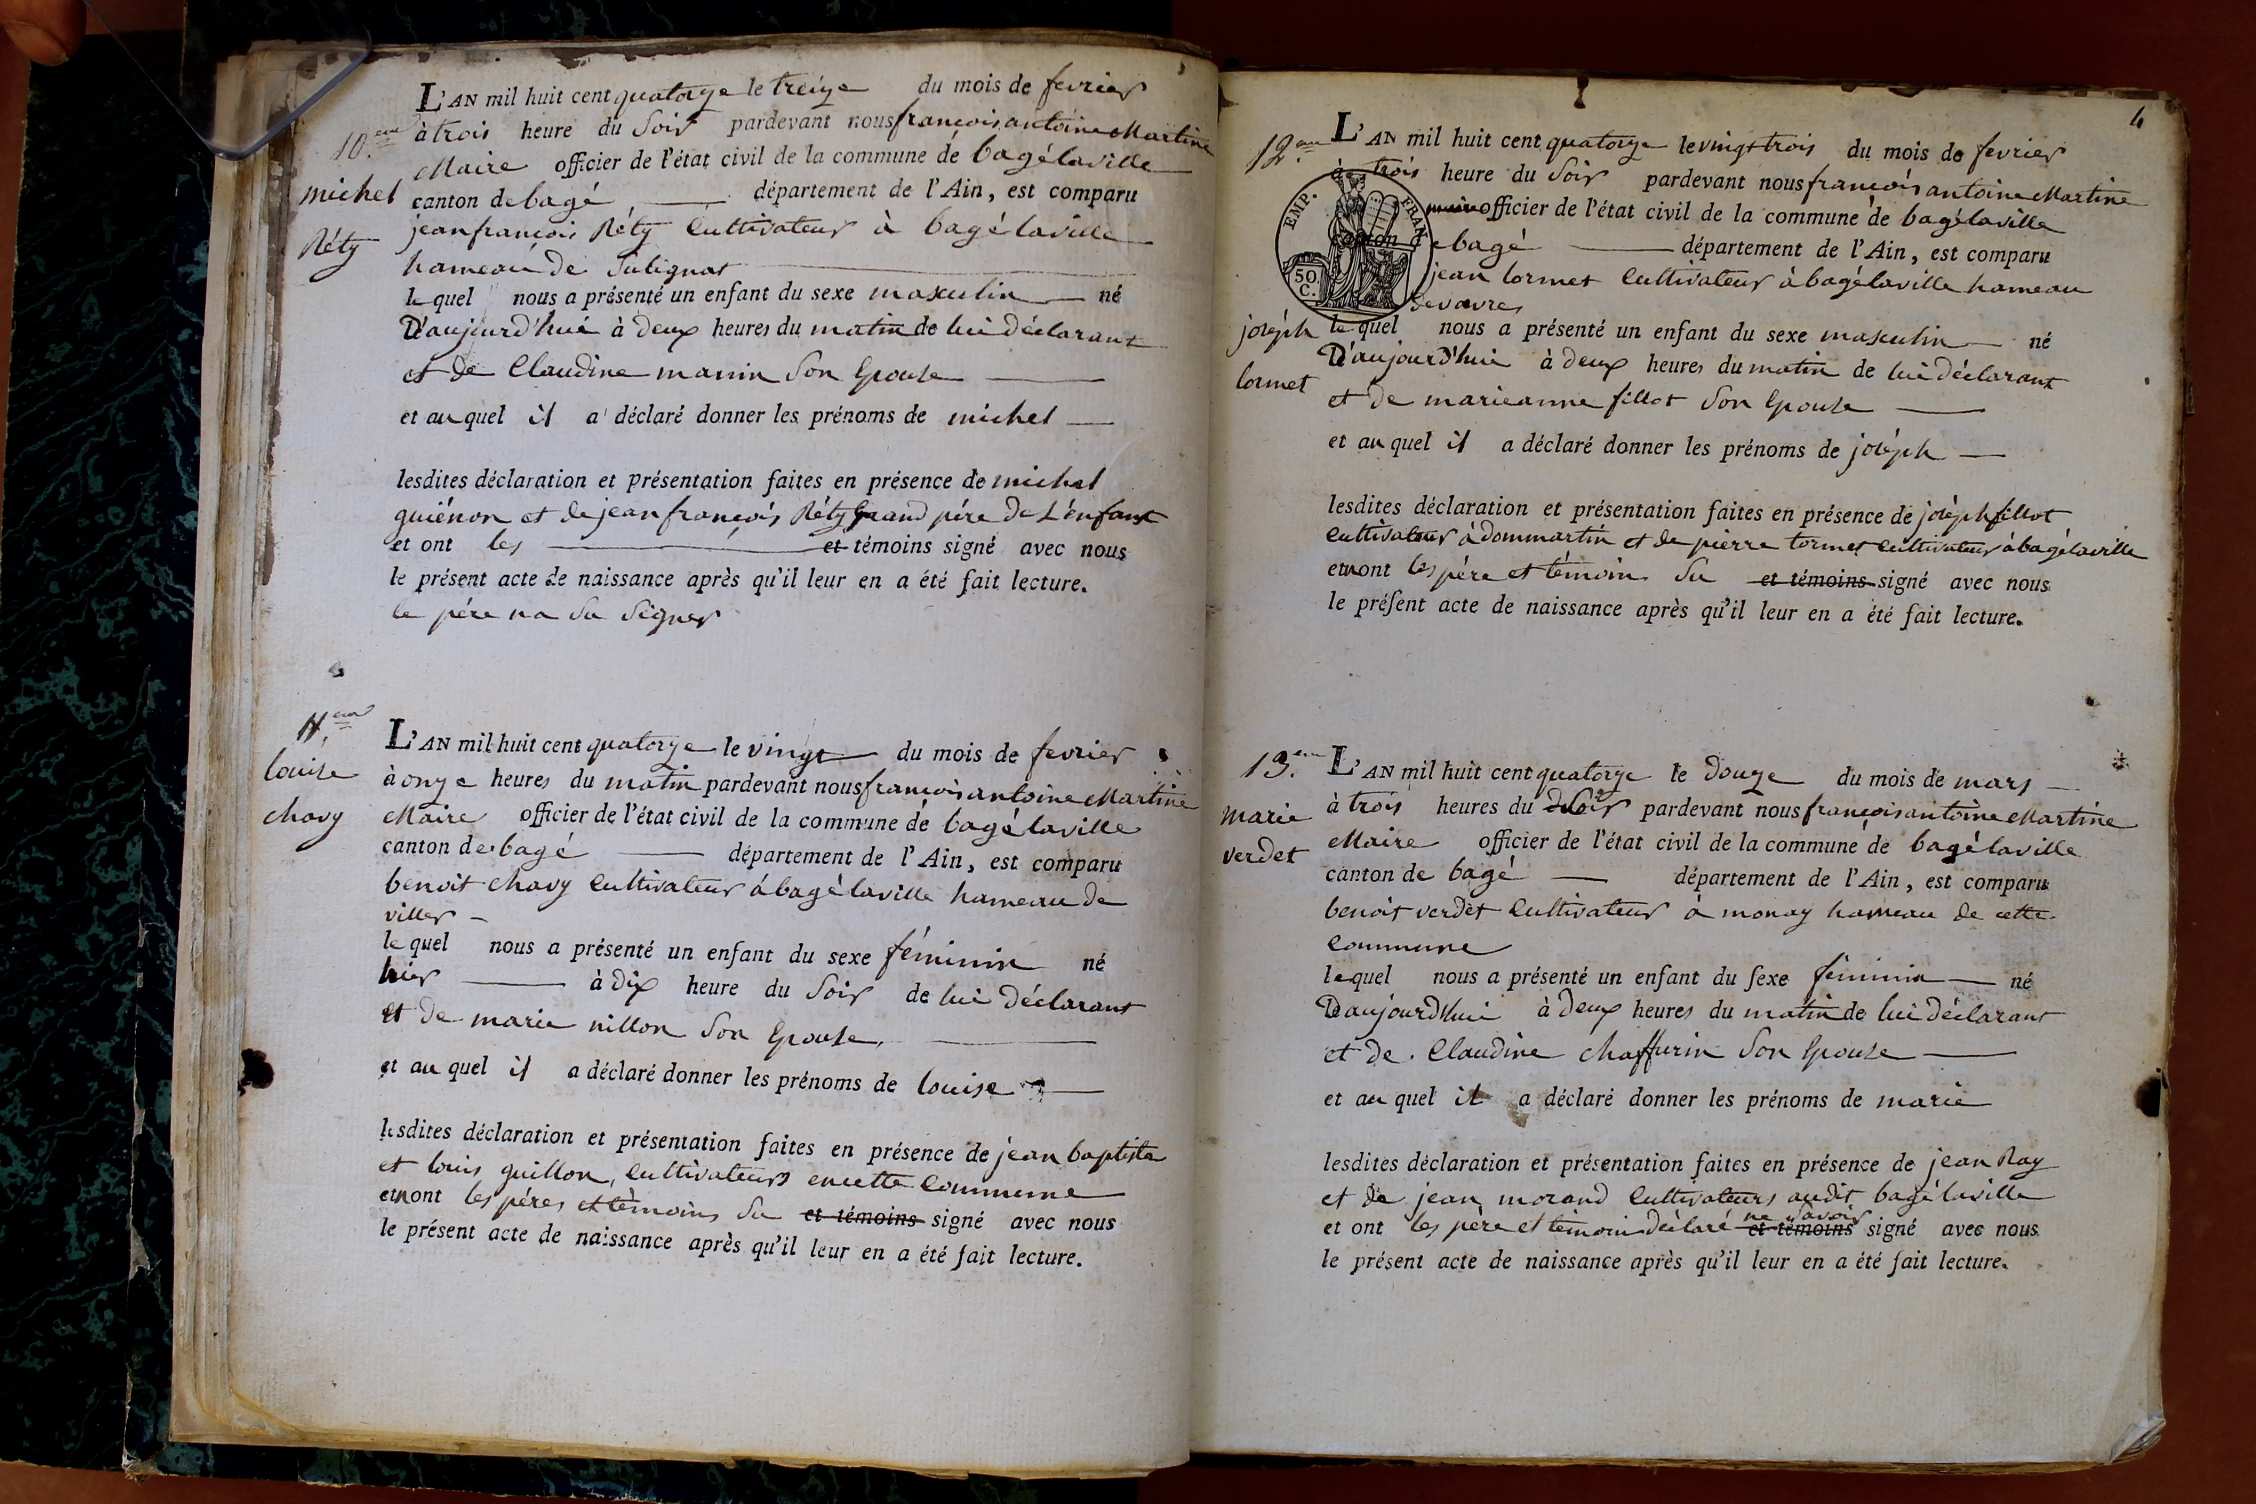 10.eme
michel
Réty
L'AN mil huit cent quatorze le treize du mois de fevrier
à trois heure du Soir pardevant nous françois antoine Martine
Maire officier de l'état civil de la commune de bagé laville
canton de bagé département de l'Ain, est comparu
jean françois Réty Cultivateur à bagé laville
hameau de Sulignat
le quel nous a présenté un enfant du sexe masculin né
D'aujourd'hui à Deux heures du matin de lui Déclarant
et de Claudine manin Son Epouse
et au quel il a déclaré donner les prénoms de michel
lesdites déclaration et présentation faites en présence de michel
guiénon et de jean françois Réty Grand pére de L'énfant
et ont les et témoins signé avec nous
le présent acte de naissance après qu'il leur en a été fait lecture.
le pére na Su Signer
11.eme
louise
chavy
L'AN mil huit cent quatorze le vingt du mois de fevrier
à onze heures du matin pardevant nous françois antoine Martine
Maire officier de l'état civil de la commune de bagé laville
canton de bagé département de l'Ain, est comparu
benoit chavy Cultivateur á bagé laville hameau de
villes
le quel nous a présenté un enfant du sexe féminin né
hier à dix heure du Soir de lui Déclarant
et de marie nillon Son Epouse,
et au quel il a déclaré donner les prénoms de louise
lesdites déclaration et présentation faites en présence de jean baptiste
et louis guillon, Cultivateurs en cette Commune
et n'ont les péres et témoins Su et témoins signé avec nous
le présent acte de naissance après qu'il leur en a été fait lecture.
4
12.eme
joséph
lormet
L'AN mil huit cent quatorze le vingt trois du mois de fevrier
à trois heure du Soir pardevant nous françois antoine Martine
maire officier de l'état civil de la commune de bagé laville
canton de bagé département de l'Ain, est comparu
EMP. FRAN
50 C.
jean lormet Cultivateur à bagé laville hameau
de vavres
le quel nous a présenté un enfant du sexe masculin né
D'aujourd'hui à deux heures du matin de lui déclarant
et de marieanne fillot Son Epouse
et au quel il a déclaré donner les prénoms de joséph
lesdites déclaration et présentation faites en présence de joséph fillot
Cultivateur à dommartin et de pierre lormet Cultivateur à bagé laville
et n'ont les pére et témoins Su et témoins signé avec nous
le présent acte de naissance après qu'il leur en a été fait lecture.
13.eme
marie
verdet
L'AN mil huit cent quatorze le Douze du mois de mars
à trois heures du Soir pardevant nous françois antoine Martine
Maire officier de l'état civil de la commune de bagé laville
canton de bagé département de l'Ain, est comparu
benoit verdet Cultivateur à monay hameau de cette
Commune
lequel nous a présenté un enfant du sexe féminin né
D'aujourd'hui à Deux heures du matin de lui Déclarant
et de Claudine chaffurin Son Epouse
et au quel il a déclaré donner les prénoms de marie
lesdites déclaration et présentation faites en présence de jean Ray
et de jean morand Cultivateurs audit bagé laville
et ont les père et témoin déclaré ne Savoir et témoins signé avec nous
le présent acte de naissance après qu'il leur en a été fait lecture.